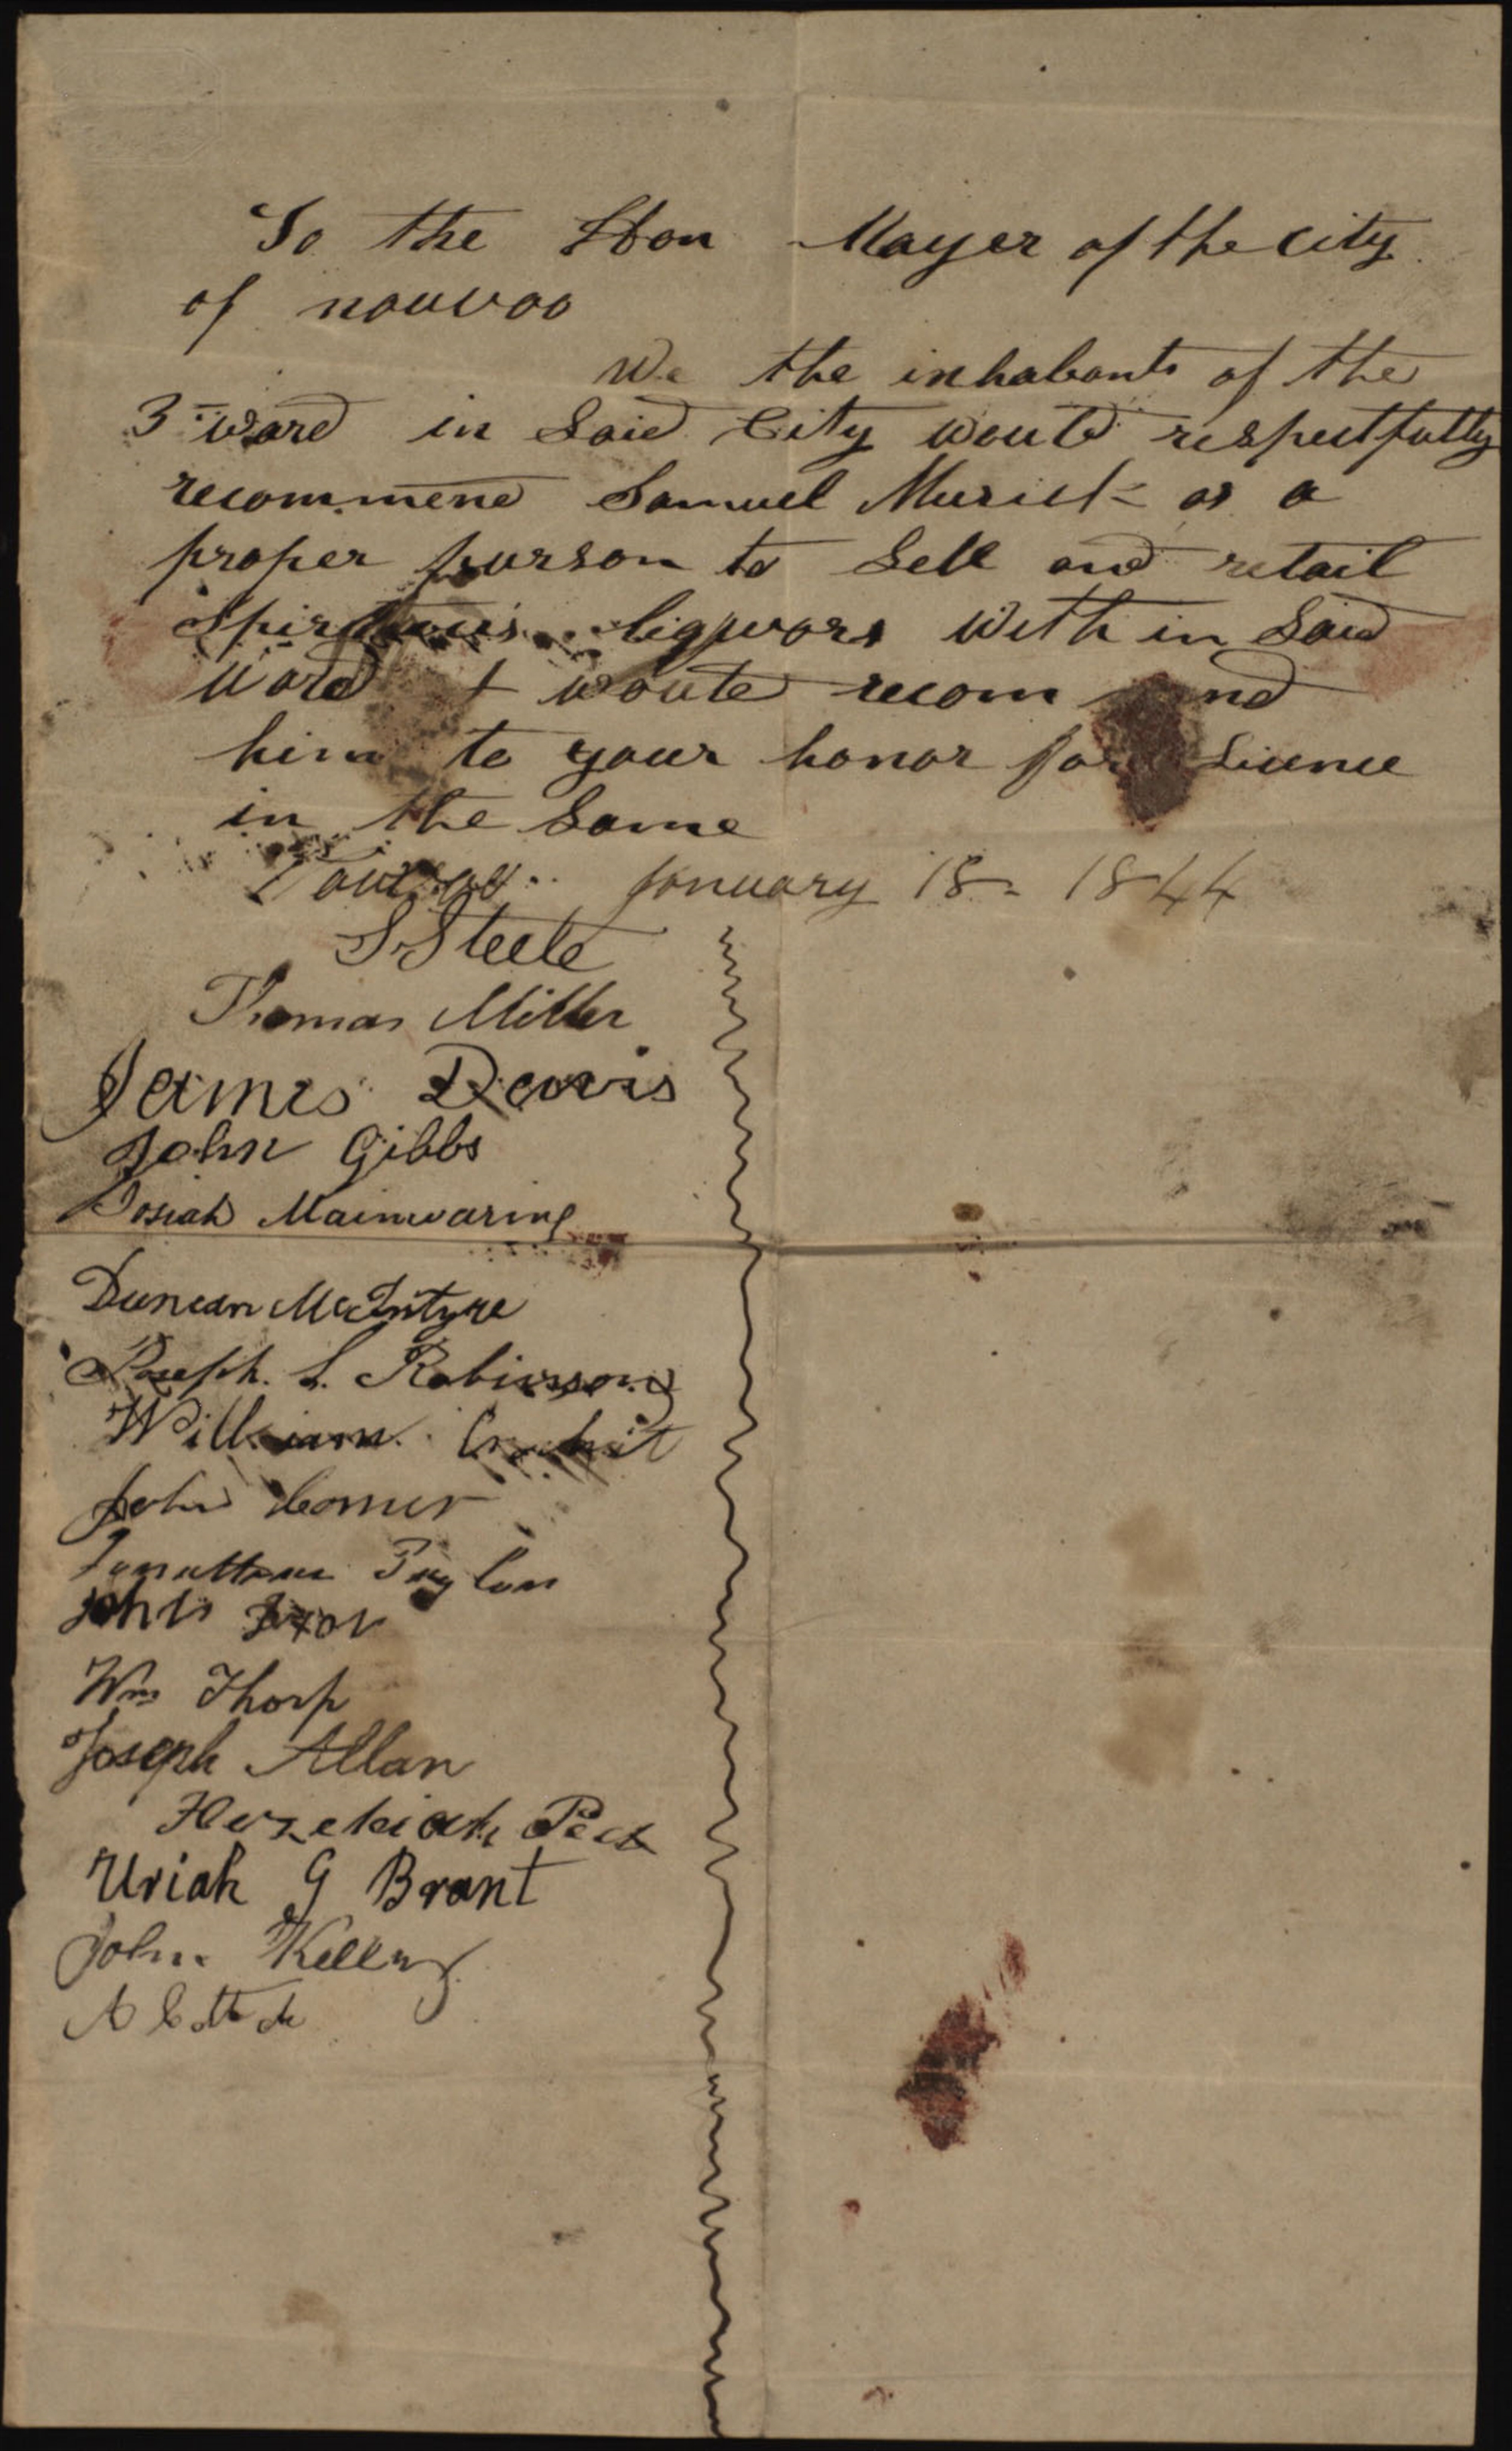 To the Hon Mayer of the City
of nauvoo
We the inhabants of the
3 ward in Said City would respectfully
recommend Samuel Musick as a
proper purson to Sell and retail
Spiritous liqwors With in Said
Ward + would recommend
him to your honor for Licence
in the Same
Nauvoo January 18 1844
S Steele
Thomas Miller
James Davis
John Gibbs
Josiah Mainwaring
Duncan McIntyre
Joseph. L. Robinson
William
John Comer
John
Wm Thorp
Joseph Allan
Hezekiah Peck
Uriah G Brant
John Kelley